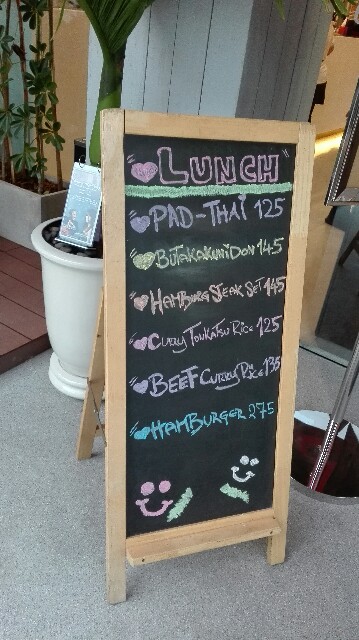 "LUNCH"
PAD-THAI 125
BUTAKAKUNIDON 145
HAMBURG STEAK SET 145
CURRY TONKATSU RICE 125
BEEF CURRY RICE 135
HAMBURGER 275